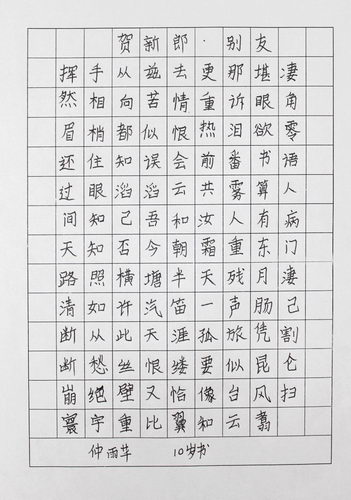 贺新郎·别友
挥手从兹去更那堪凄
然相向苦情重诉眼角
眉梢都似恨热泪欲零
还住知误会前番书语
过眼滔滔云共雾算人
间知己吾和汝人有病
天知否今朝霜重东门
路照横塘半天残月凄
清如许汽笛一声肠已
断从此天涯孤旅凭割
断愁丝恨缕要似昆仑
崩绝壁又恰像台风扫
寰宇重比翼和云翥
仲雨芊 10岁书